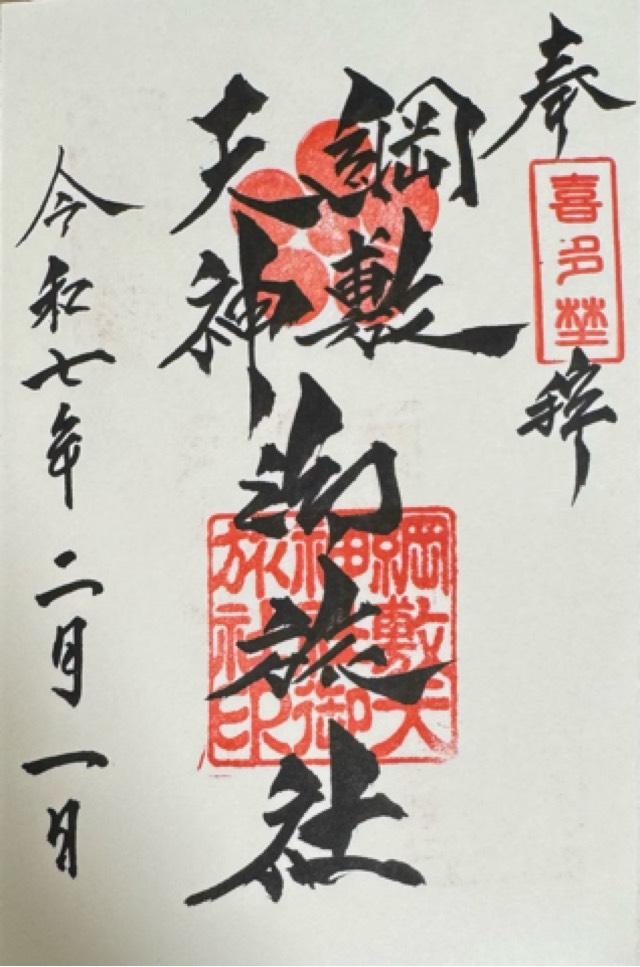 奉
喜多埜
拝
綱敷
天神
御旅社
綱敷天
神社御
旅社印
令和七年二月一日